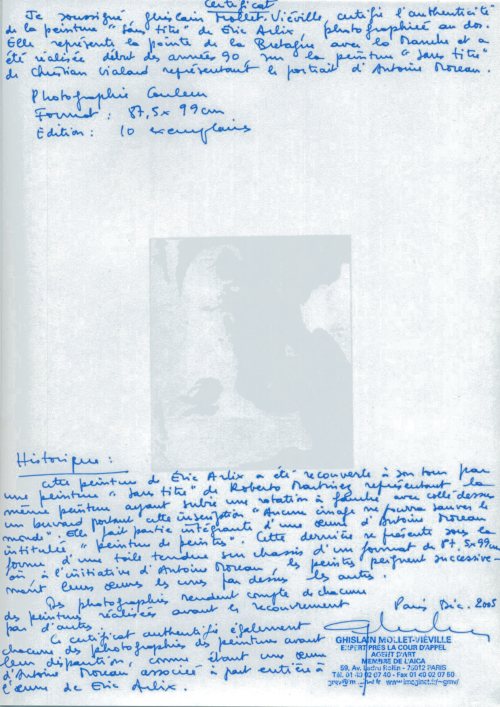 Certificat
Je soussigné Ghislain Mollet-Viéville certifie l'authenticité
de la peinture "Sans titre" de Eric Arlix, photographiée au dos.
Elle représente la pointe de la Bretagne avec la Manche et a
été réalisée début des années 90, sur la peinture "Sans titre"
de Christian Vialard représentant le portrait d'Antoine Moreau.
Photographie Couleur
Format : 87,5 x 99 cm
Edition : 10 exemplaires
Historique :
Cette peinture de Éric Arlix a été recouverte à son tour par
une peinture "Sans titre" de Roberto Martinez représentant la
même peinture ayant subie une rotation à gauche avec collé dessus
un buvard portant cette inscription "Aucune image ne pourra sauver le
monde". Elle fait partie intégrante d'une œuvre d'Antoine Moreau
intitulée "peinture de peintres". Cette dernière se présente sous la
forme d'une toile tendue sur chassis d'un format de 87,5x99cm
où à l'initiative d'Antoine Moreau, les peintres peignent successive-
ment leurs œuvres les unes par dessus les autres.
Des photographies rendent compte de chacune
des peintures réalisées avant le recouvrement
par d'autres.
Paris Déc. 2005
Ce certificat authentifie également
chacune des photographies des peintures avant
leur disparition, comme étant une œuvre
d'Antoine Moreau associée à part entière à
l'œuvre de Eric Arlix.
GHISLAIN MOLLET-VIÉVILLE
EXPERT PRÈS LA COUR D'APPEL
AGENT D'ART
MEMBRE DE L'AICA
59, Av. Ledru Rollin - 75012 PARIS
Tél. 01 40 02 07 40 - Fax 01 40 02 07 60